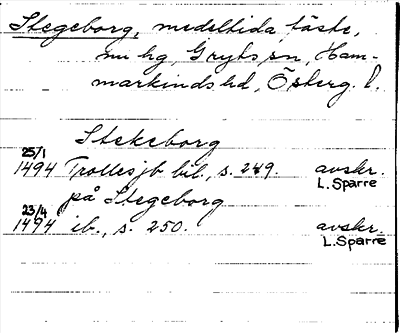 Stegeborg, medeltida fäste,
nu hg, Gryts sn, Ham-
markinds hd, Österg. l.
Stekeborg
25/1
1494 Trolles jb bil., s. 249. avskr.
L. Sparre
på Stegeborg
23/4
1494 ib., s. 250. avskr.
L. Sparre